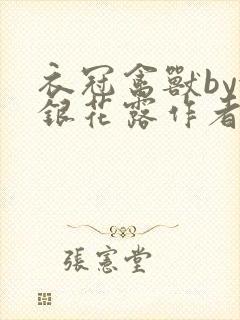 衣冠禽獸by
銀花露作者
張憲堂